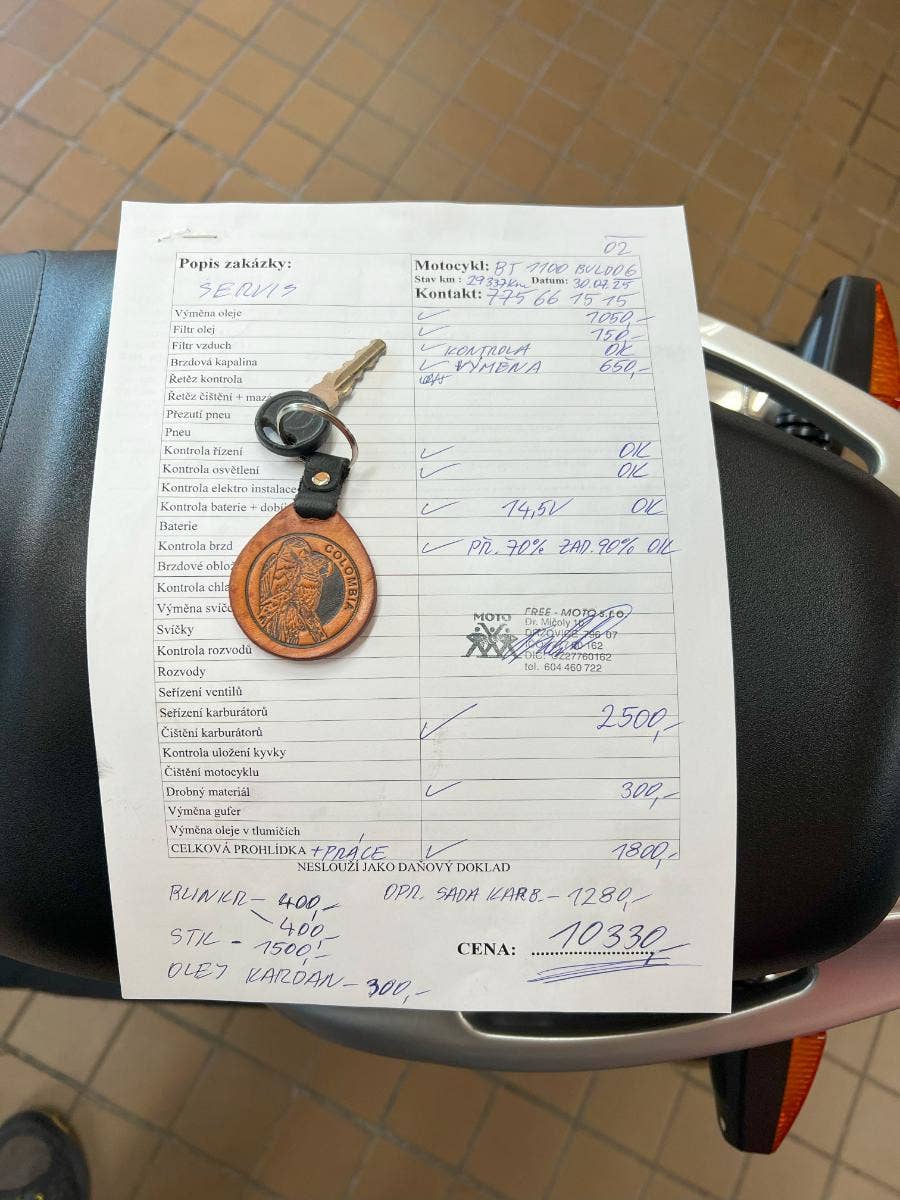 02
Popis zakázky:
SERVIS
Motocykl: BT 1100 BULDOG
Stav km : 29337km Datum: 30.07.25
Kontakt: 775 66 15 15
Výměna oleje ✓ 1050,-
Filtr olej ✓ 150,-
Filtr vzduch ✓ KONTROLA OK
Brzdová kapalina ✓ VÝMĚNA 650,-
Řetěz kontrola
Řetěz čištění + maz
Přezutí pneu
Pneu
Kontrola řízení ✓ OK
Kontrola osvětlení ✓ OK
Kontrola elektro instalace
Kontrola baterie + dobíj ✓ 14,5V OK
Baterie
Kontrola brzd ✓ PŘ. 70% ZAD. 90% OK
Brzdové oblo
Kontrola chla
Výměna svíč
Svíčky
Kontrola rozvodů
Rozvody
MOTO
FREE - MOTO s.r.o.
Dr. Mičoly
DRŽOVICE 796 07
DIČ: CZ27760162
tel. 604 460 722
Seřízení ventilů
Seřízení karburátorů 2500,-
Čištění karburátorů ✓
Kontrola uložení kyvky
Čištění motocyklu
Drobný materiál ✓ 300,-
Výměna gufer
Výměna oleje v tlumičích
CELKOVÁ PROHLÍDKA +PRÁCE ✓ 1800,-
NESLOUŽÍ JAKO DAŇOVÝ DOKLAD
BLINKR - 400,-
400
OPR. SADA KARB. - 1280,-
STK - 1500,-
OLEJ KARDAN - 300,-
CENA: 10330,-
COLOMBIA